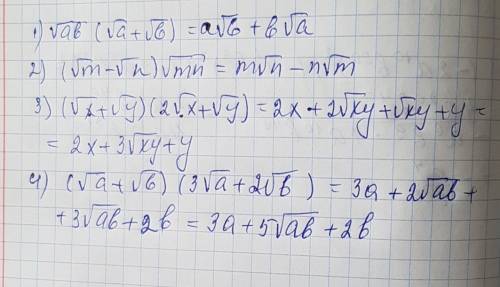 1) √ab (√a+√b) = a√b + b√a
2) (√m-√n)√mn = m√n - n√m
3) (√x+√y)(2√x+√y) = 2x + 2√xy + √xy + y =
= 2x + 3√xy + y
4) (√a + √b) (3√a + 2√b) = 3a + 2√ab +
+3√ab + 2b = 3a + 5√ab + 2b